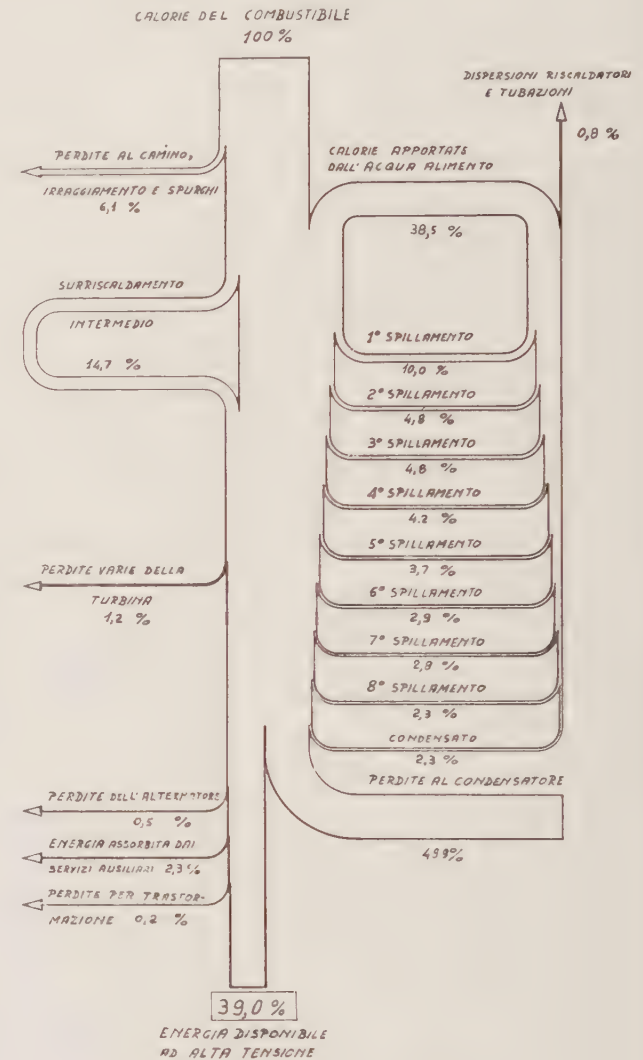 CALORIE DEL COMBUSTIBILE
100 %
DISPERSIONI RISCALDATORI
E TUBAZIONI
0,8 %
PERDITE AL CAMINO,
IRRAGGIAMENTO E SPURGHI
6,1 %
CALORIE APPORTATE
DALL'ACQUA ALIMENTO
38,5 %
SURRISCALDAMENTO
INTERMEDIO
14,7 %
1° SPILLAMENTO
10,0 %
2° SPILLAMENTO
4,8 %
3° SPILLAMENTO
4,8 %
4° SPILLAMENTO
4.2 %
5° SPILLAMENTO
3,7 %
6° SPILLAMENTO
2,9 %
7° SPILLAMENTO
2,8 %
8° SPILLAMENTO
2,3 %
CONDENSATO
2,3 %
PERDITE VARIE DELLA
TURBINA
1,2 %
PERDITE AL CONDENSATORE
499%
PERDITE DELL'ALTERNATORE
0,5 %
ENERGIA ASSORBITA DAI
SERVIZI AUSILIARI 2,3%
PERDITE PER TRASFOR-
MAZIONE 0,2 %
39,0 %
ENERGIA DISPONIBILE
AD ALTA TENSIONE